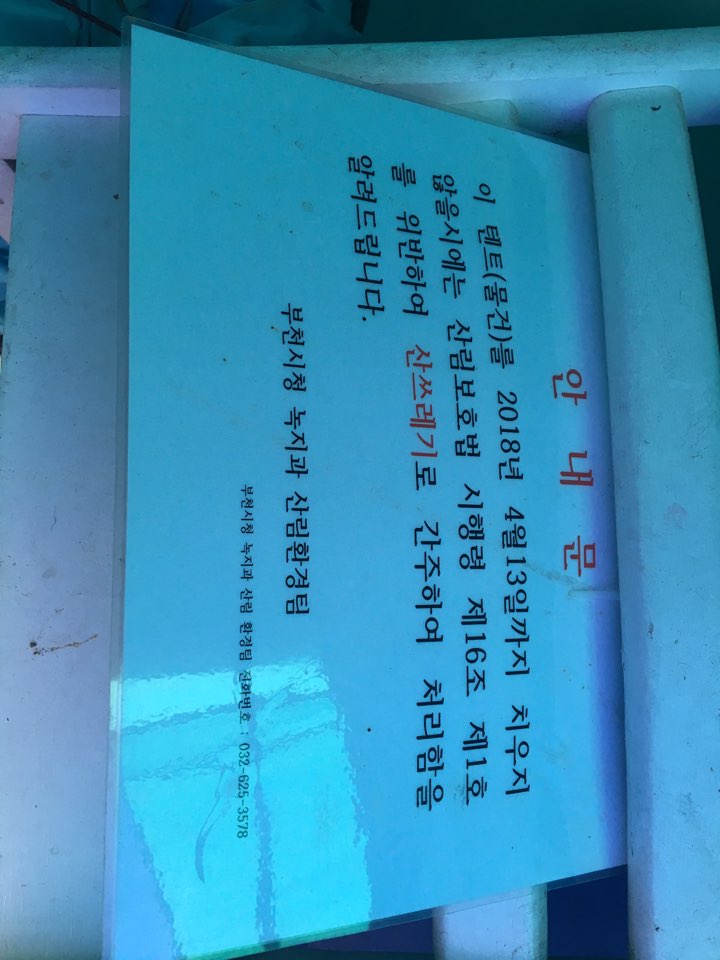 안 내 문
이 텐트(물건)를 2018년 4월13일까지 치우지
않을시에는 산림보호법 시행령 제16조 제1호
를 위반하여 산쓰레기로 간주하여 처리함을
알려드립니다.
부천시청 녹지과 산림환경팀
부천시청 녹지과 산림 환경팀 전화번호 : 032-625-3578